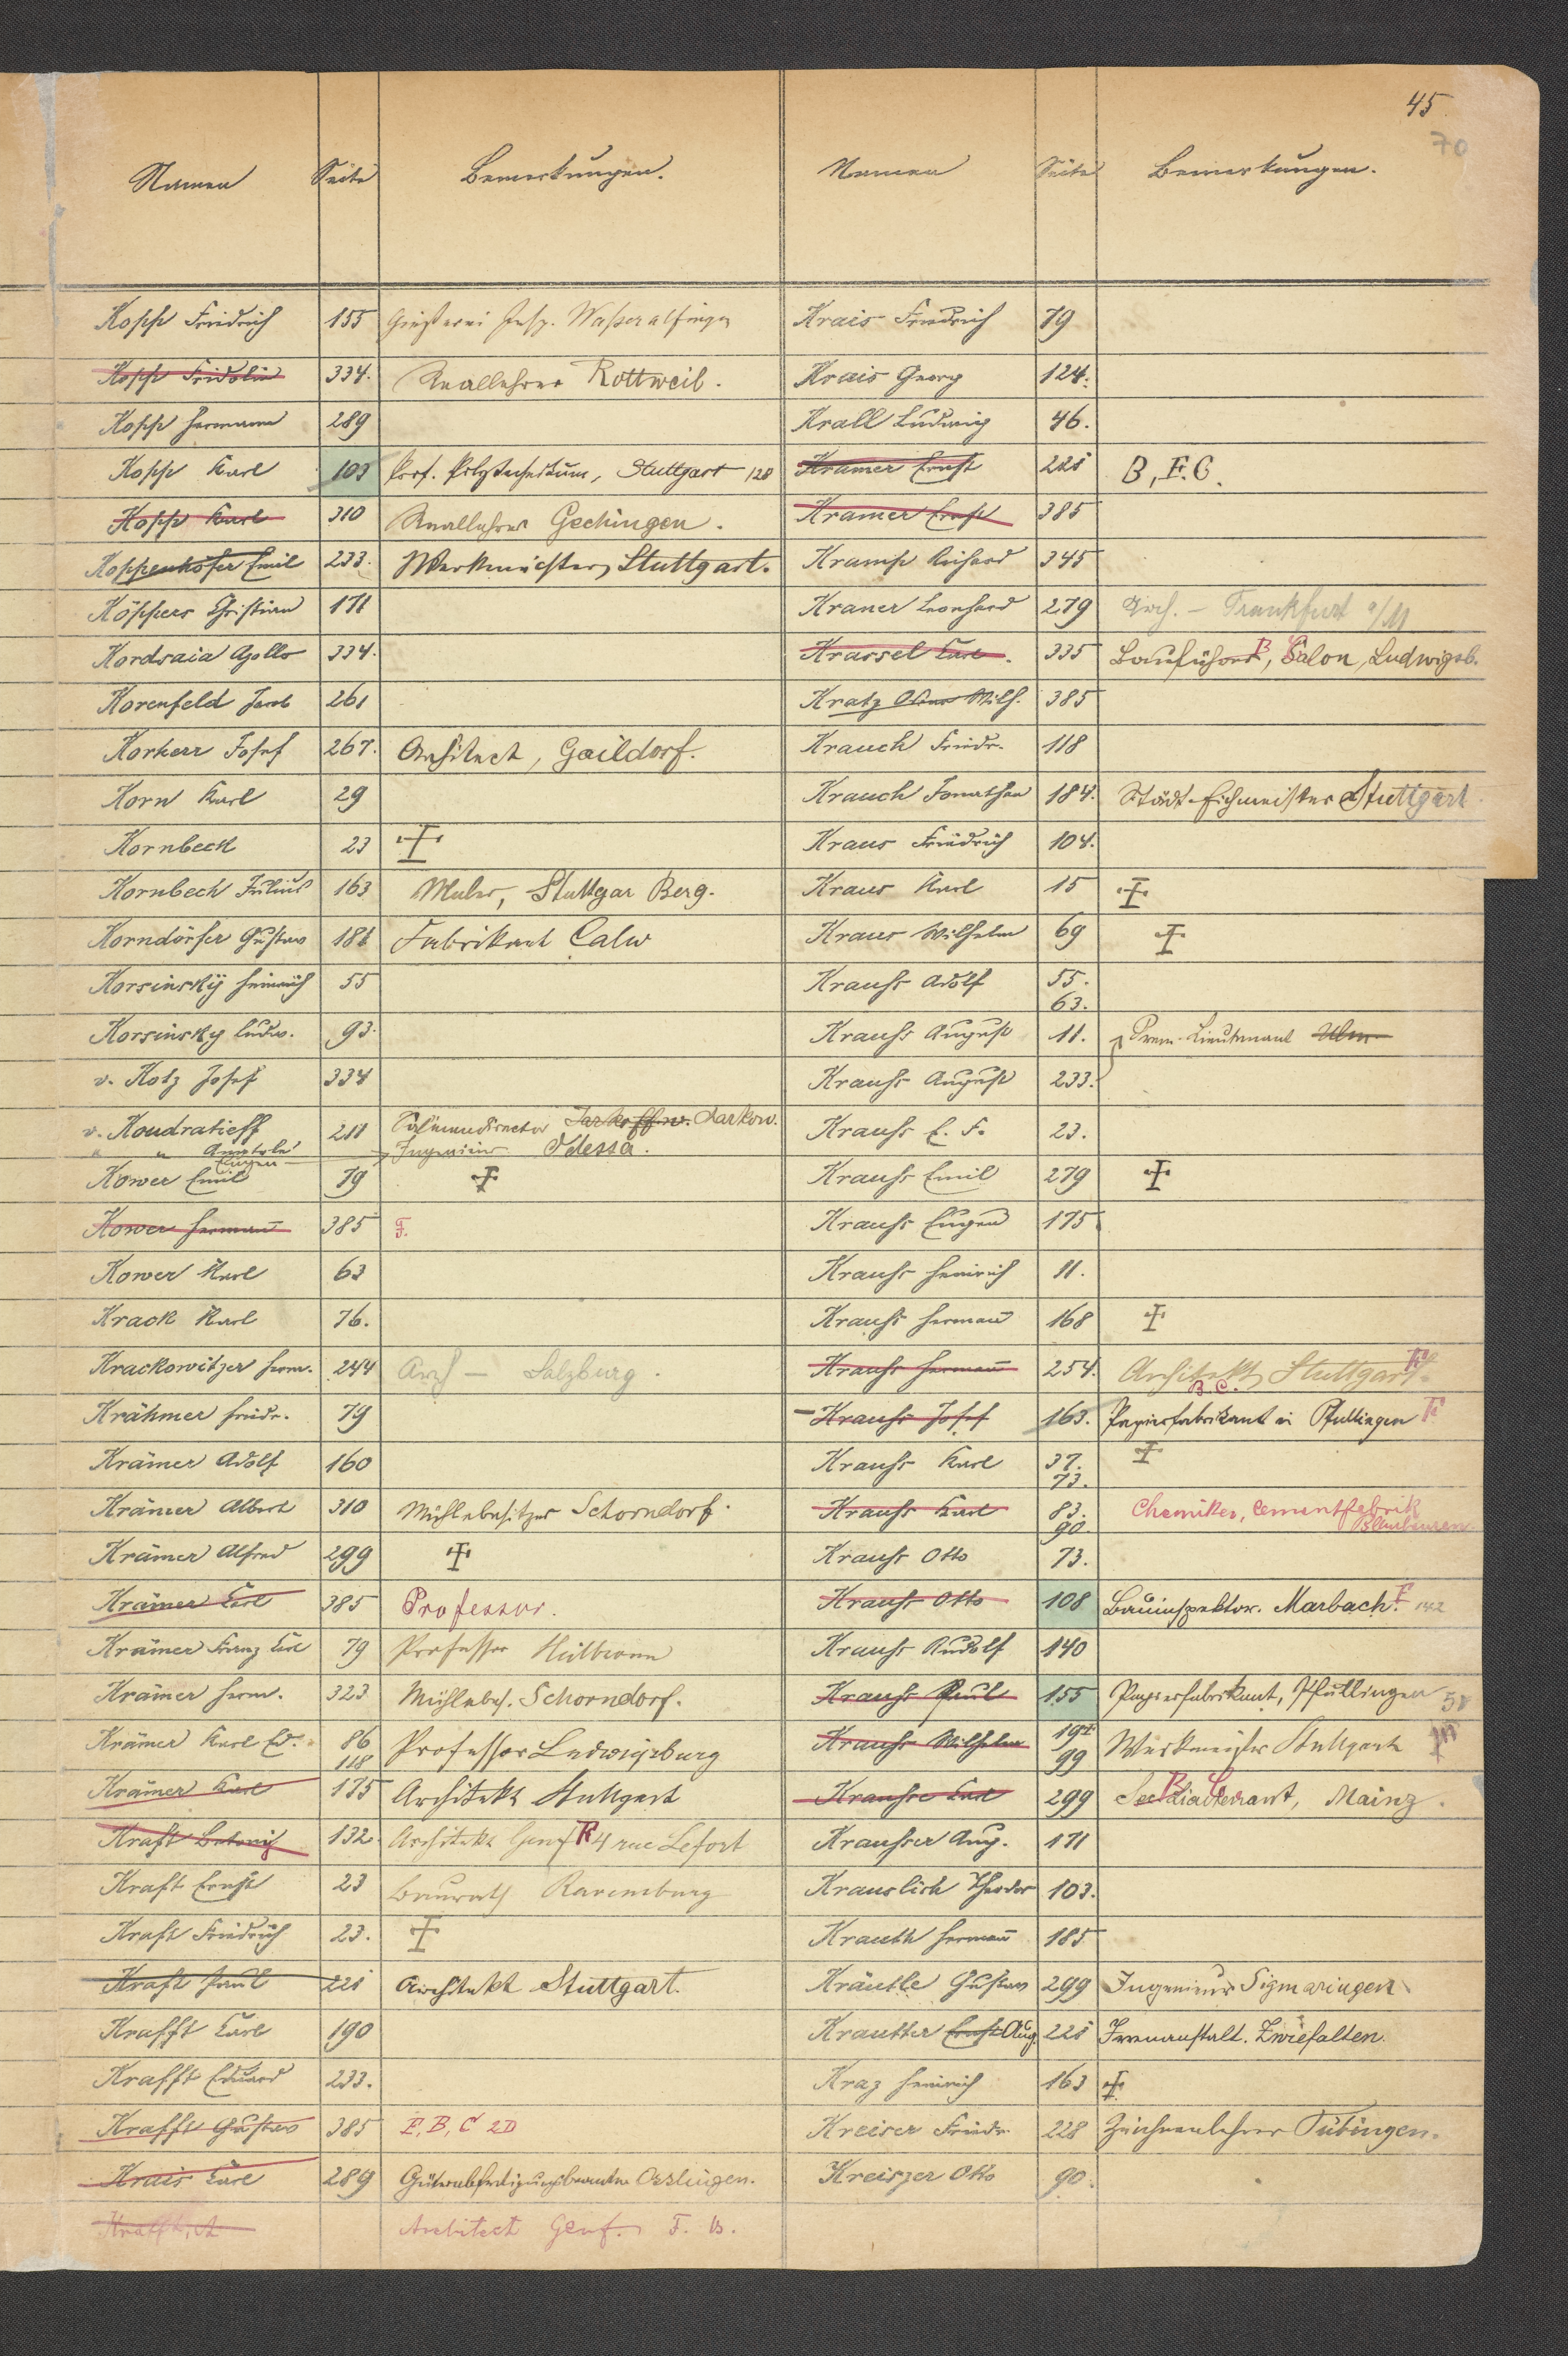 45
70
Namen Seite Bemerkungen.
Kopp Friedrich 155 Gießerei Insp. Wasseralfingen
Kopp Fridolin 334. Reallehrer Rottweil.
Kopp Hermann 289
Kopp Karl 103 Prof. Polytechnikum, Stuttgart 128
Kopp Karl 310 Reallehrer Gechingen.
Koppenhöfer Emil 233. Werkmeister, Stuttgart.
Köppers Christian 171
Kordsaia Apollo 334.
Korenfeld Jacob 261
Korherr Josef 267. Architect, Gaildorf.
Korn Karl 29
Kornbeck 23 ‡
Kornbeck Julius 163 Maler, Stuttgar Berg.
Korndörfer Gustav 181 Fabrikant Calw
Korsinskÿ Heinrich 55
Korsinsky Ludw. 93.
v. Kotz Josef 334
v. Koudratieff 211 Salinendirector Charkow.
" " Anatole Ingenieur Odessa.
Eugen
Kower Emil 79 ‡
Kower Hermann 385 F.
Kower Karl 63
Krack Karl 76.
Krackowitzer Herm. 244 Arch – Salzburg.
Krähmer Friedr. 79
Krämer Adolf 160
Krämer Albert 310 Mühlebesitzer Schorndorf.
Krämer Alfred 299 ‡
Krämer Carl 385 Professor.
Krämer Franz Carl 79 Professor Heilbronn
Krämer Herm. 323 Mühlebes. Schorndorf.
Krämer Karl Ed. 86 Professor Ludwigsburg
118
Krämer Karl 175 Architekt Stuttgart
Kraft 132 Architekt Genf 4 rue Lefort
Kraft Ernst 23 Baurath Ravensburg
Kraft Friedrich 23. ‡
Kraft Paul 221 Architekt Stuttgart.
Krafft Carl 190
Krafft Eduard 233.
Krafft Gustav 385 F, B, C 2D
Krais Carl 289 Güterabfertigungsbeamter Esslingen.
Krafft, A Architect Genf. F. B.
Namen Seite Bemerkungen.
Krais Friedrich 79
Krais Georg 124.
Krall Ludwig 46.
Kramer Ernst 221 B, F. C.
Kramer Ernst 385
Kramp Richard 345
Kraner Leonhard 279 Arch. – Frankfurt a/M
Krassel Carl. 335 Bauführer, Salon, Ludwigsb.
Kratz Wilh. 385
Krauch Friedr. 118
Krauch Jonathan 184. Städt. Eichmeister Stuttgart
Kraus Friedrich 104.
Kraus Karl 15 ‡
Kraus Wilhelm 69 ‡
Krauss Adolf 55.
63.
Krauss August 11. Prem. Lieutenant Ulm
Krauss August 233.
Krauss E. F. 23.
Krauss Emil 279 ‡
Krauss Eugen 175
Krauss Heinrich 11.
Krauss Hermann 168 ‡
Krauss Hermann 254. Architekt, Stuttgart. F.
B C.
Krauss Josef 163. Papierfabrikant in Pfullingen F.
Krauss Karl 37. ‡
73.
Krauss Karl 83. Chemiker, Cementfabrik
90. Blaubeuren
Krauss Otto 73.
Krauss Otto 108 Bauinspektor. Marbach. F 142
Krauss Rudolf 140
Krauss Paul 155 Papierfabrikant, Pfullingen 58
Krauss Wilhelm 191 Werkmeister Stuttgart
99
Krausse Carl 299 Mainz.
Krausser Aug. 171
Krauslich Theodor 103.
Krauth Hermann 185
Kräutle Gustav 299 Ingenieur Sigmaringen
Krautter Ernst Aug. 221 Irrenanstalt. Zwiefalten.
Kraz Heinrich 163 ‡
Kreiser Friedr. 228 Zeichnenlehrer Tübingen.
Kreiszer Otto 90.